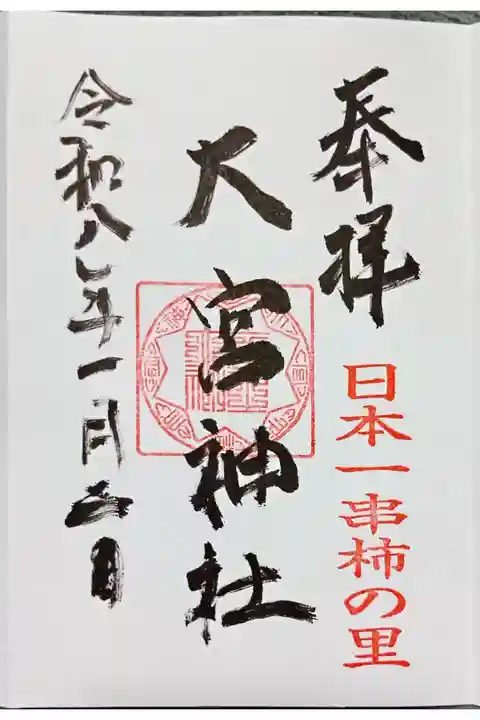 奉拝
日本一串柿の里
大宮神社
令和八年一月五日